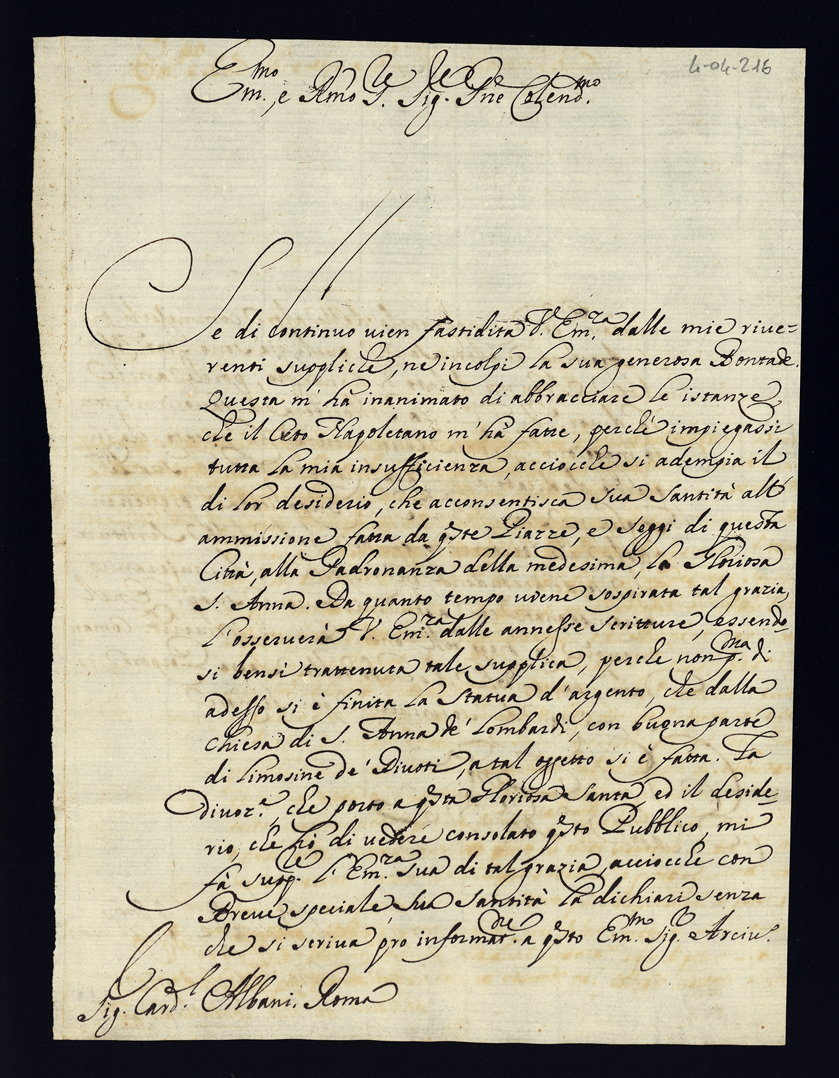 4-04-216
Em.mo, e Rmo S.re Sig.re Pne Colend.mo
Se di continuo vien fastidita V. Em.ra dalle mie rive=
renti suppliche, ne incolpi la sua generosa Bontade.
Questa m' hà inanimato di abbracciare le istanze,
che il Ceto Napoletano m' hà fatte, perchè impiegassi
tutta la mia insufficienza, acciocche si adempia il
di lor desiderio, che acconsentisca Sua Santità all'
ammissione fatta da qste Piazze, e Seggi di questa
Città, alla Padronanza della medesima, la Gloriosa
S. Anna. Da quanto tempo viene sospirata tal grazia,
l'osserverà V. Em.ra dalle annesse scritture, essendo=
si bensì trattenuta tale supplica, perche non p.ma di
adesso si è finita la Statua d'argento, che dalla
Chiesa di S. Anna de' Lombardi, con buona parte
di limosine de' Divoti, a tal oggetto si è fatta. La
divoz.e, che porto a qsta Gloriosa Santa, ed il deside=
rio, che hò di vedere consolato qsto Pubblico, mi
fà supp.re l' Em.ra Sua di tal grazia, acciocche con
Breve speciale Sua Santità la dichiari senza
che si scriva pro informat.ne a qsto Em.mo Sig.r Arciv.o
Sig. Card.l Albani. Roma